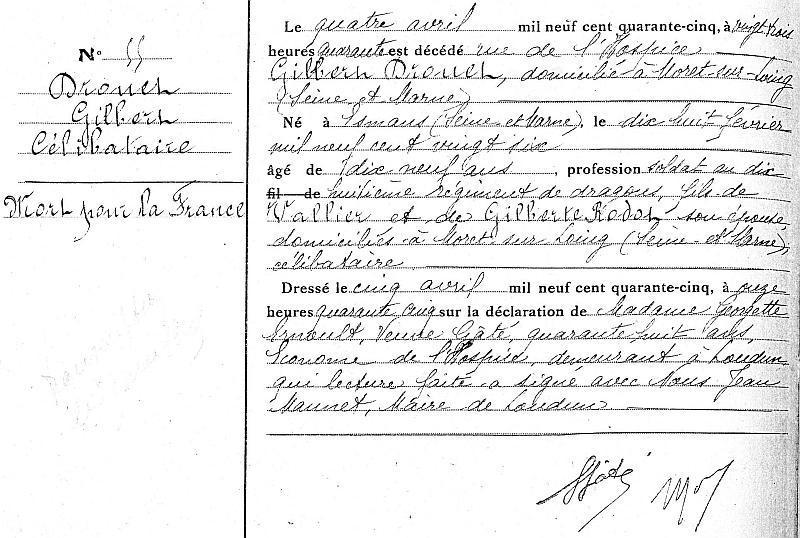 N° 55
Drouet
Gilbert
Célibataire
Mort pour la France
Le quatre avril mil neuf cent quarante-cinq, à vingt trois
heures quarante est décédé rue de l'Hospice
Gilbert Drouet, domicilié à Moret-sur-Loing
(Seine et Marne)
Né à Esmans (Seine et Marne), le dix huit février
mil neuf cent vingt six
âgé de dix neuf ans, profession soldat au dix
fil de huitième régiment de dragons, fils de
Vallier et de Gilberte Rodot son épouse,
domiciliés à Moret sur Loing (Seine et Marne),
célibataire
Dressé le cinq avril mil neuf cent quarante-cinq, à onze
heures quarante cinq sur la déclaration de Madame Georgette
Arnoult, Veuve Gâté, quarante huit ans,
Econome de l'Hospice, demeurant à Loudun
qui lecture faite a signé avec Nous Jean
Maunet, Maire de Loudun
Gâté